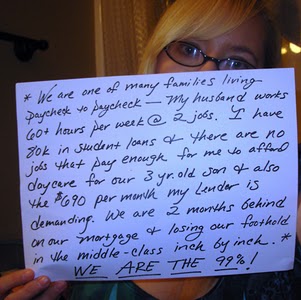 * We are one of many families living
paycheck to paycheck — My husband works
60+ hours per week @ 2 jobs. I have
80k in student loans & there are no
jobs that pay enough for me to afford
daycare for our 3 yr. old son & also
the $690 per month my lender is
demanding. We are 2 months behind
on our mortgage & losing our foothold
in the middle-class inch by inch. *
WE ARE THE 99%!